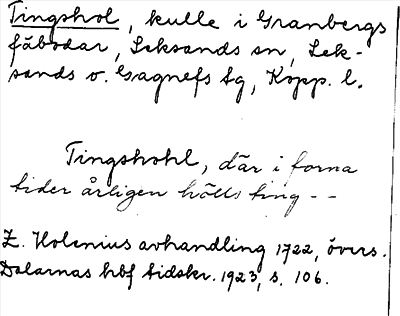 Tingshol, kulle i Granbergs
fäbodar, Leksands sn, Lek-
sands o. Gagnefs tg, Kopp. l.
Tingshohl, där i forna
tider årligen hölls ting - -
Z. Holenius avhandling 1722, övers.
Dalarnas hbf tidskr. 1923, s. 106.